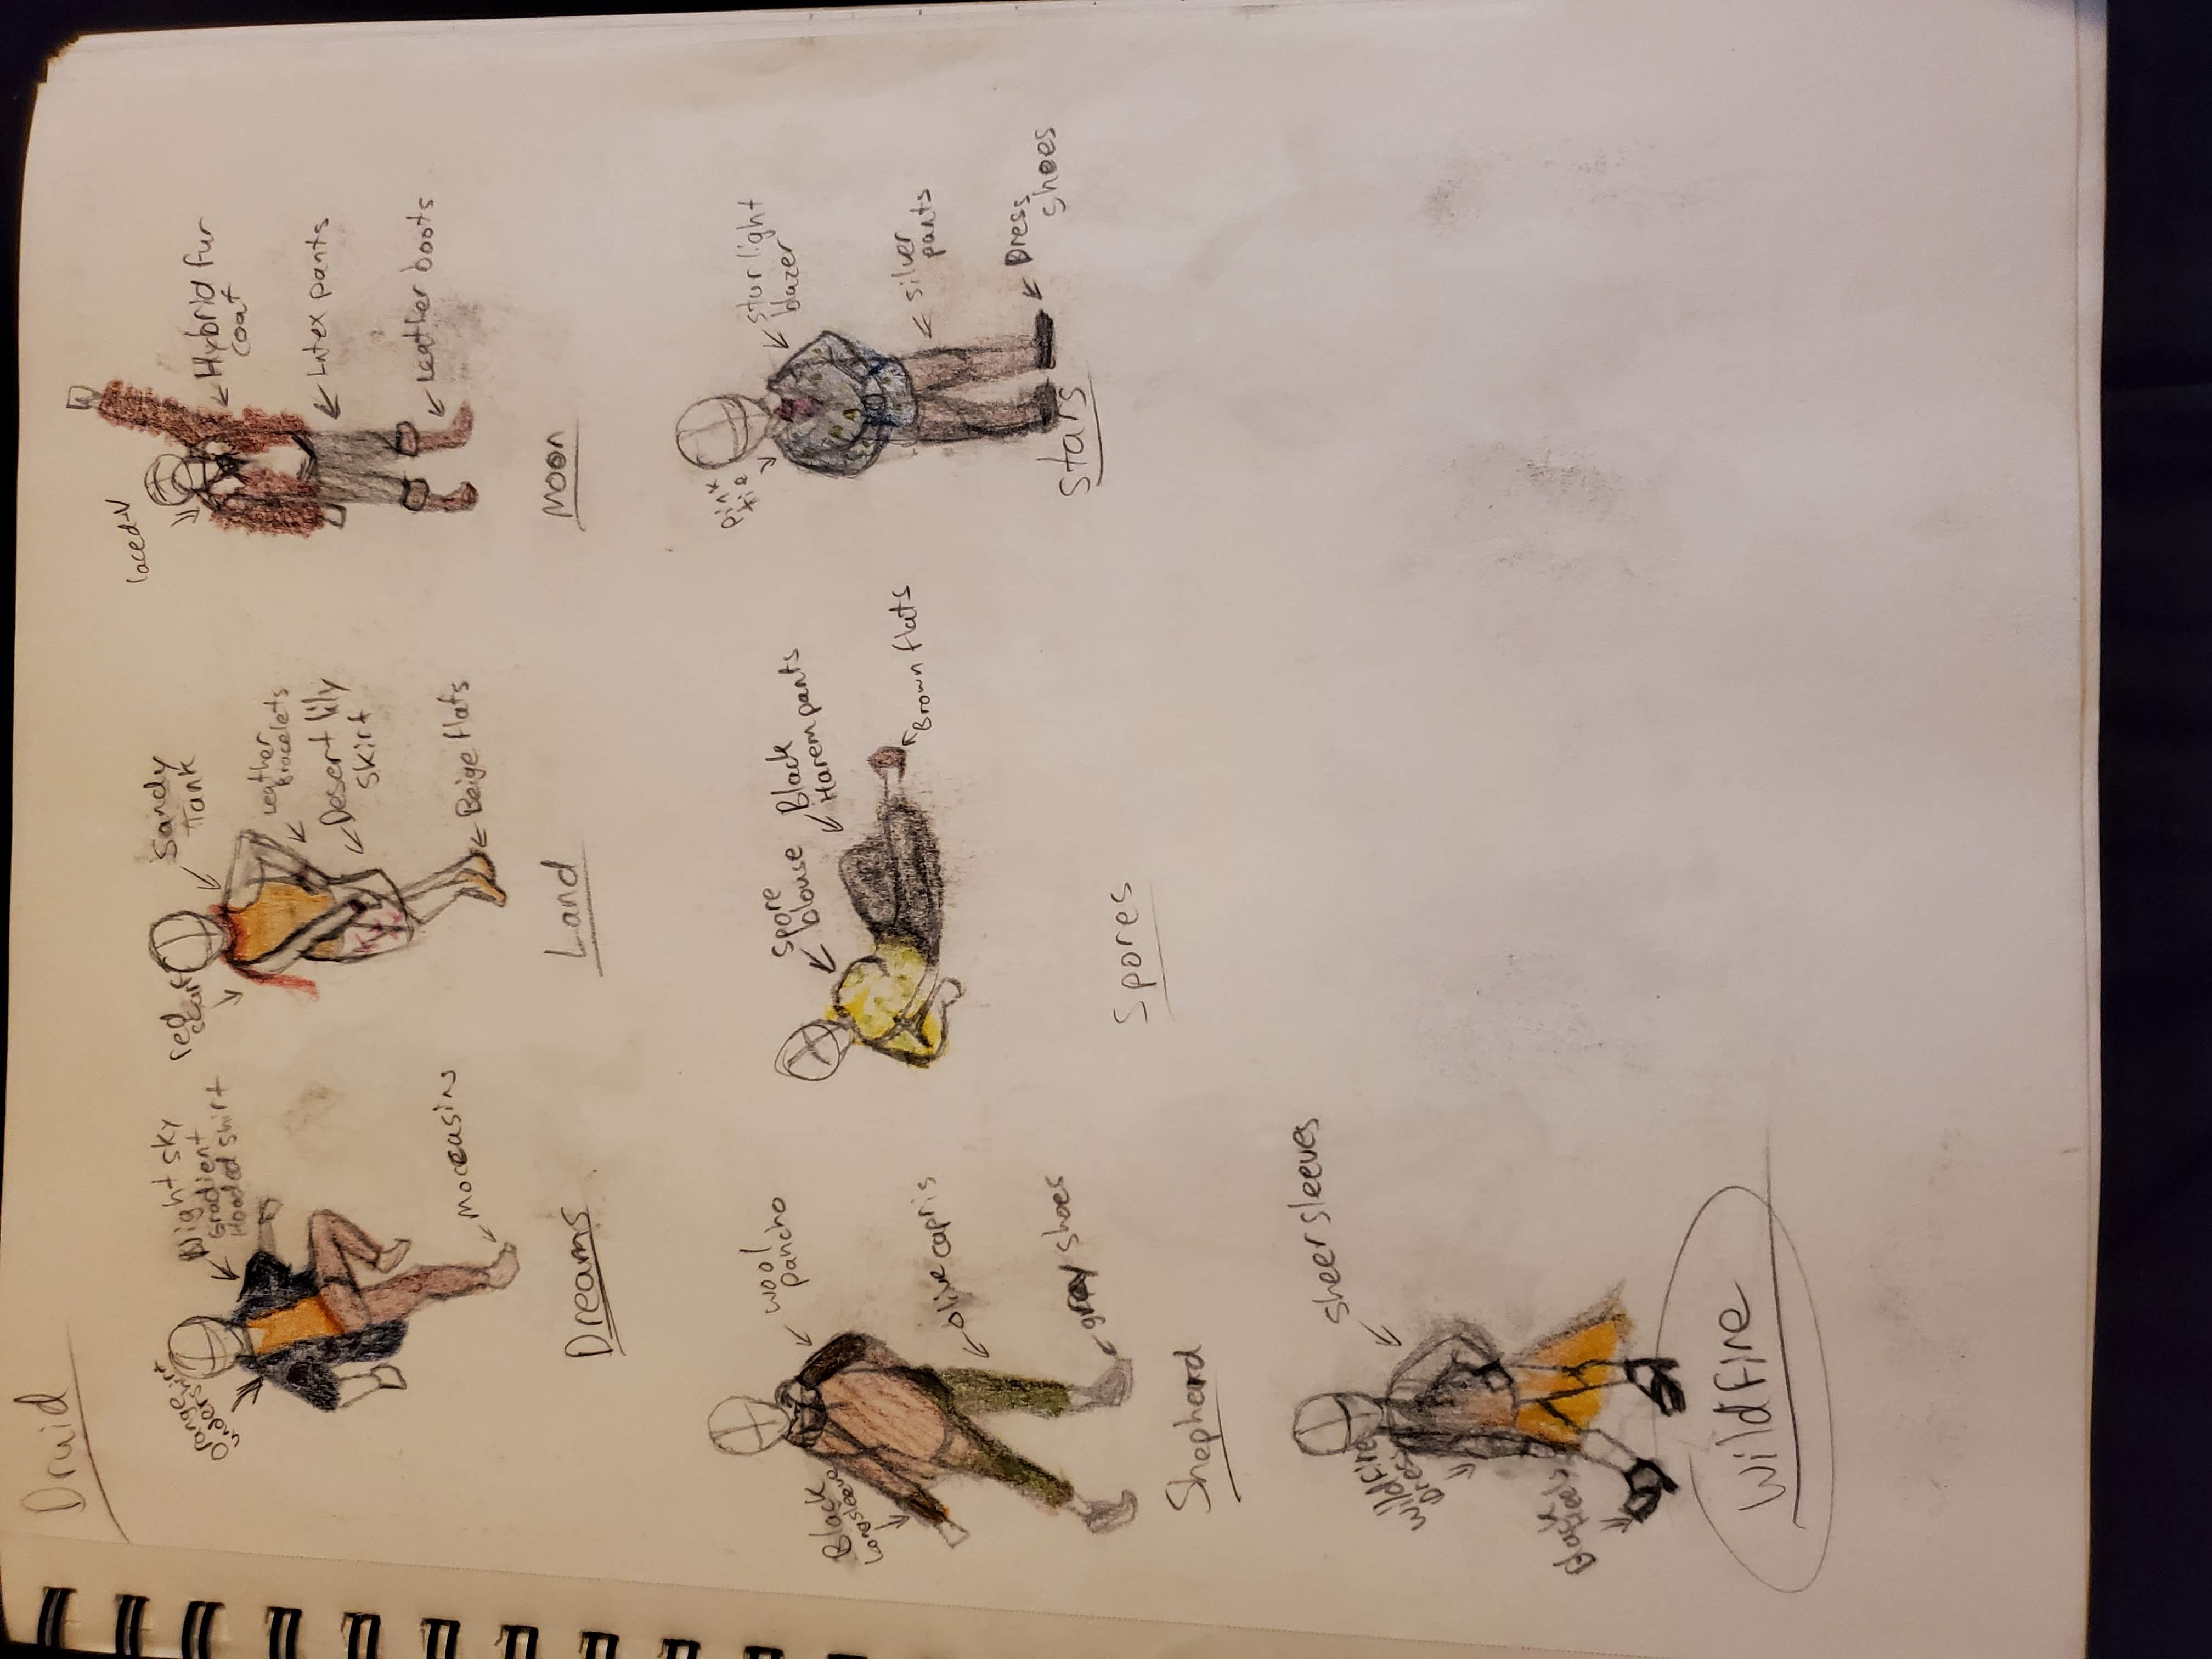 Druid
orange
undershirt
Night sky
Gradient
Hooded shirt
Moccasins
Dreams
red
scarf
Sandy
Tank
Leather
Bracelets
Desert lily
skirt
Beige flats
Land
laced-V
Hybrid fur
coat
Latex pants
Leather boots
Moon
Black
Longsleeve
wool
pancho
olive capris
gray shoes
Shepherd
Spore
blouse
Black
Harem pants
Brown flats
Spores
pink
tie
starlight
blazer
silver
pants
Dress
shoes
Stars
Wildfire
Dress
sheer sleeves
Black
Heels
Wildfire